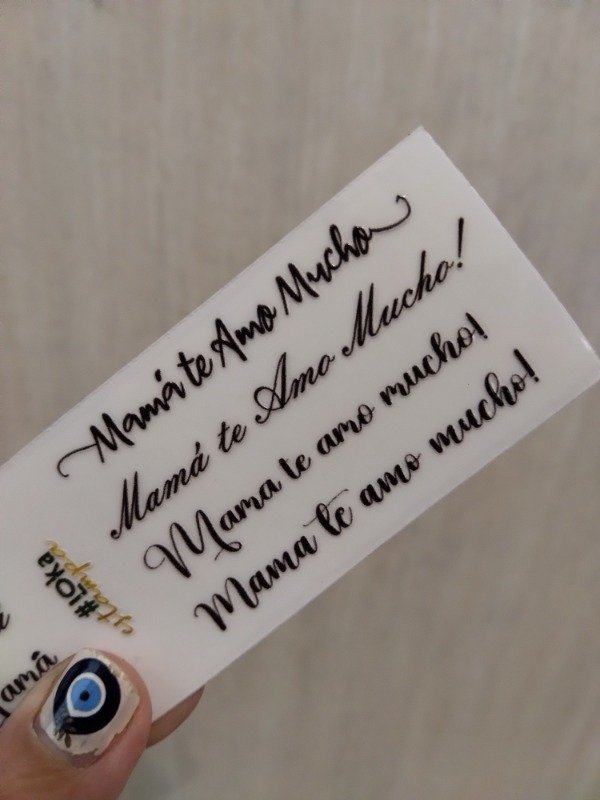 Mamá te Amo Mucho
Mamá te Amo Mucho!
Mama te amo mucho!
Mama te amo mucho!
#LOka